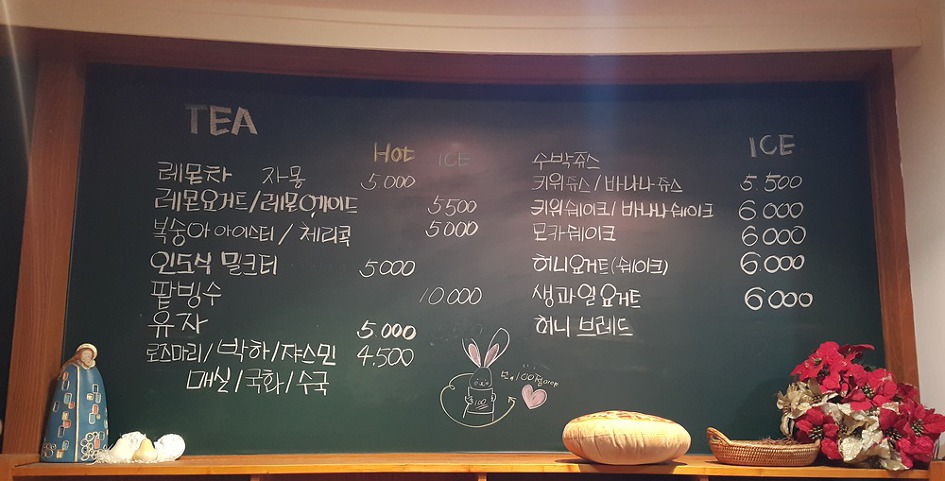 TEA
Hot ICE
레몬차 자몽 5.000
레몬요거트/레몬에이드 5500
복숭아 아이스티/체리콕 5000
인도식 밀크티 5000
팥빙수 10000
유자 5.000
로즈마리/박하/쟈스민 4.500
매실/국화/수국
100
ICE
수박쥬스
키위쥬스/바나나쥬스 5.500
키위쉐이크/바나나쉐이크 6000
모카쉐이크 6000
허니요거트(쉐이크) 6000
생과일요거트 6000
허니브레드